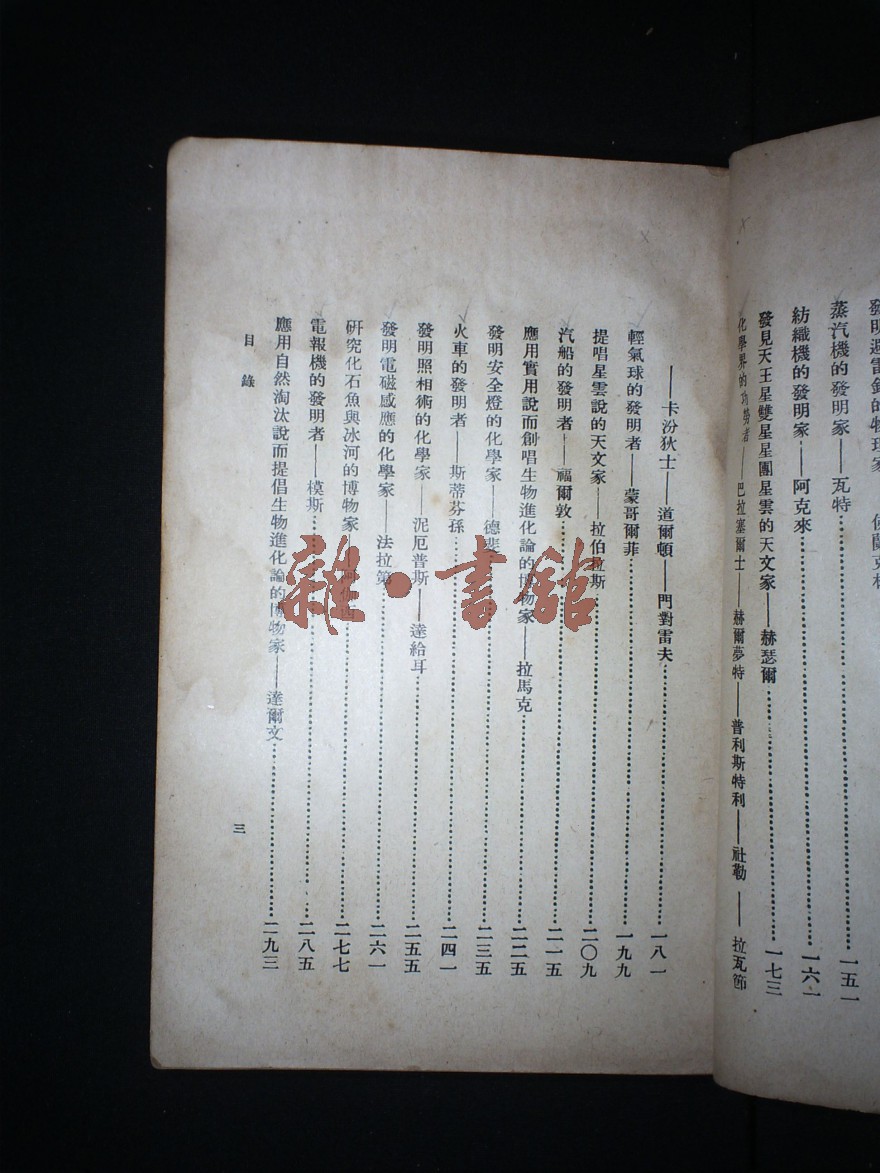 發明避雷針的物理家
蒸汽機的發明家——瓦特……一五一
紡織機的發明家——阿克來……一六一
發見天王星雙星星團星雲的天文家——赫瑟爾……一七三
化學界的功勞者——巴拉塞爾士——赫爾夢特——普利斯特利——社勒——拉瓦節
——卡汾狄士——道爾頓——門對雷夫……一八一
輕氣球的發明者——蒙哥爾菲……一九九
提唱星雲說的天文家——拉伯拉斯……二〇九
汽船的發明者——福爾敦……二一五
應用實用說而創唱生物進化論的博物家——拉馬克……二二五
發明安全燈的化學家——德斐……二三五
火車的發明者——斯蒂芬孫……二四一
發明照相術的化學家——泥厄普斯——達給耳……二五五
發明電磁感應的化學家——法拉第……二六一
研究化石魚與冰河的博物家——……二七七
電報機的發明者——模斯……二八五
應用自然淘汰說而提倡生物進化論的博物家——達爾文……二九三
目錄
三
雜·書館